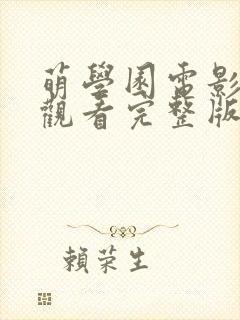 萌學園電影
觀看完整版
賴荣生